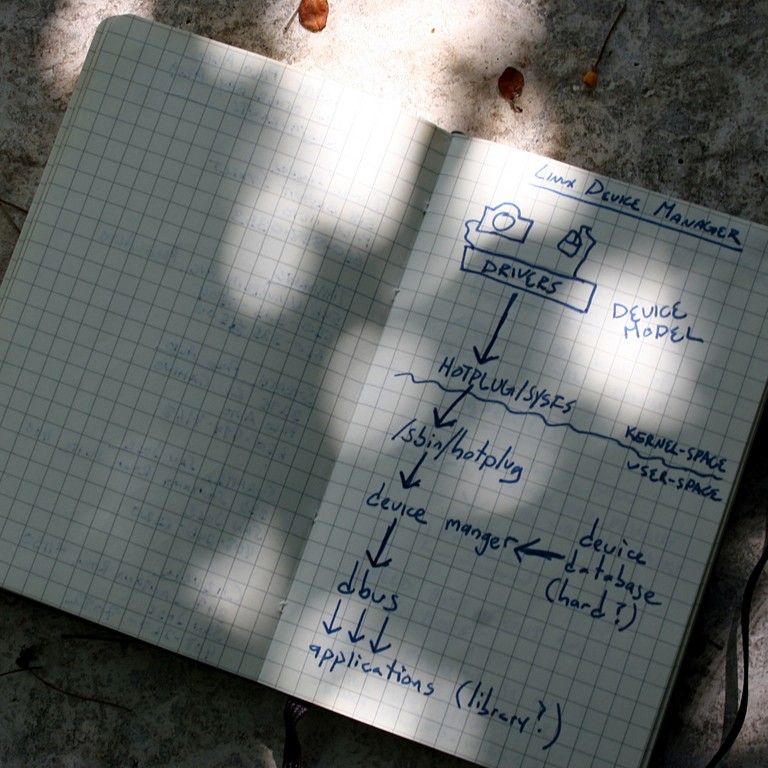 Linux Device Manager
DRIVERS
DEVICE
MODEL
HOTPLUG/SYSFS
KERNEL-SPACE
USER-SPACE
/sbin/hotplug
device manger
device
database
(hard?)
dbus
applications (library?)